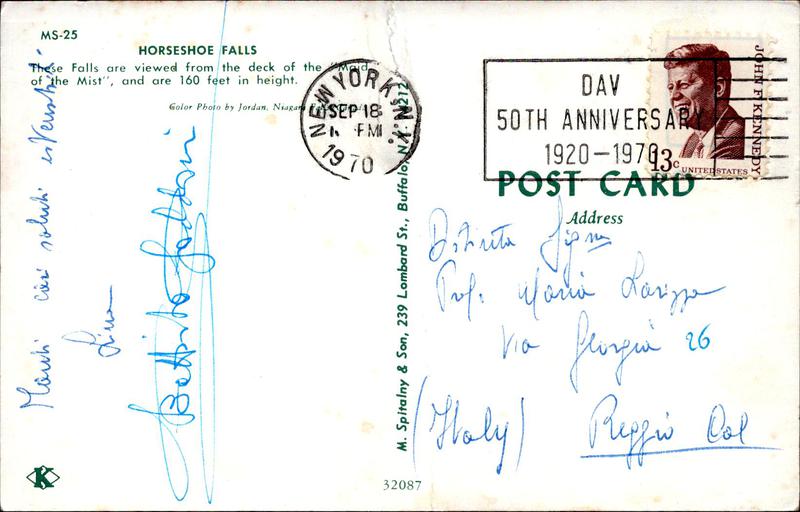 MS-25
HORSESHOE FALLS
These Falls are viewed from the deck of the "Maid
of the Mist", and are 160 feet in height.
Color Photo by Jordan, Niagara
Lina
M. Spitalny & Son, 239 Lombard St., Buffalo, N.Y. 14212
K
32087
NEW YORK, N.Y.
SEP 18
PM
1970
DAV
50TH ANNIVERSARY
1920-1970
JOHN F. KENNEDY
13c
UNITED STATES
POST CARD
Address
Distinta Sigra
Prof. Maria Larizza
Via Georgia 26
(Italy) Reggio Cal